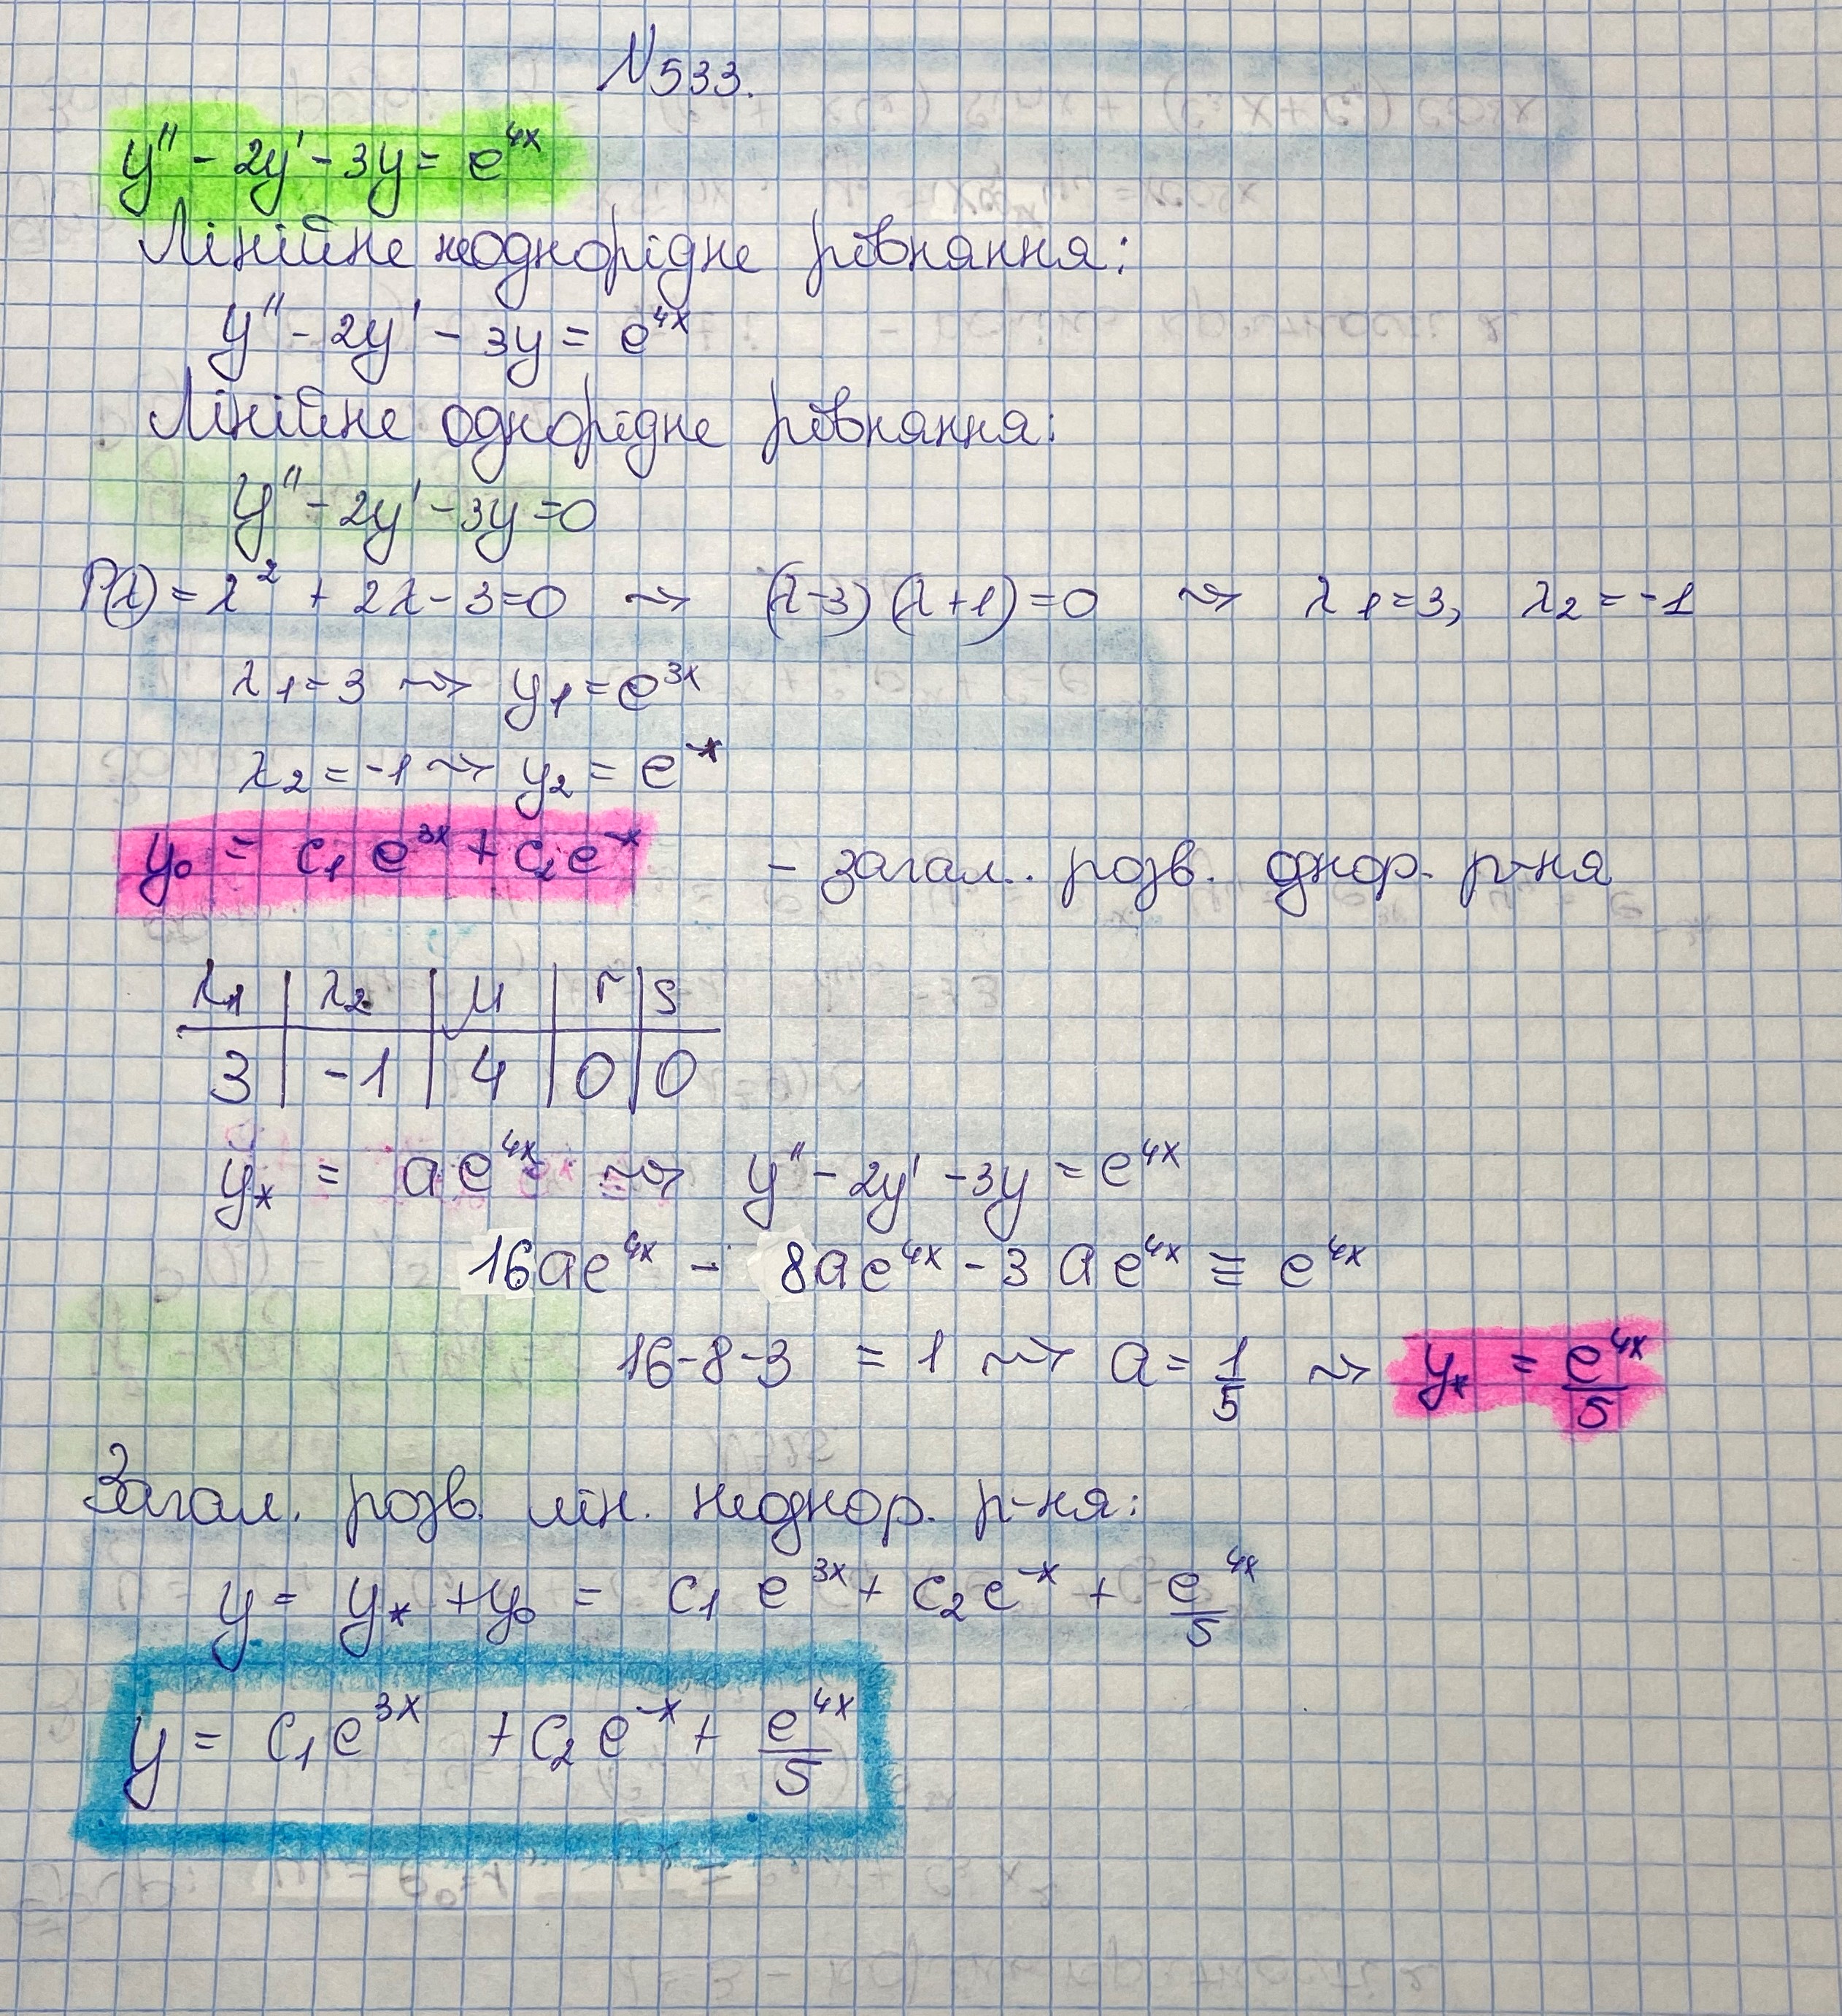 N533.
y'' - 2y' - 3y = e^{4x}
Лінійне неоднорідне рівняння:
y'' - 2y' - 3y = e^{4x}
Лінійне однорідне рівняння:
y'' - 2y' - 3y = 0
P(λ) = λ^2 + 2λ - 3 = 0 ⇝ (λ-3)(λ+1) = 0 ⇝ λ1 = 3, λ2 = -1
λ1 = 3 ⇝ y1 = e^{3x}
λ2 = -1 ⇝ y2 = e^{-x}
y0 = c1 e^{3x} + c2 e^{-x} - загал. розв. однор. р-ня
λ1 | λ2 | μ | r | s
3 | -1 | 4 | 0 | 0
y* = ae^{4x} ⇝ y'' - 2y' - 3y = e^{4x}
16ae^{4x} - 8ae^{4x} - 3ae^{4x} ≡ e^{4x}
16-8-3 = 1 ⇝ a = 1/5 ⇝ y* = e^{4x}/5
Загал. розв. лін. неоднор. р-ня:
y = y* + y0 = c1 e^{3x} + c2 e^{-x} + e^{4x}/5
y = c1 e^{3x} + c2 e^{-x} + e^{4x}/5